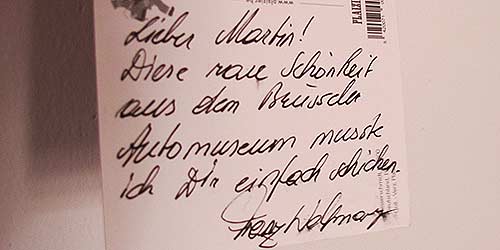 Lieber Martin!
Diese raue Schönheit
aus dem
Automuseum musste
ich Dir einfach schicken.
Franz